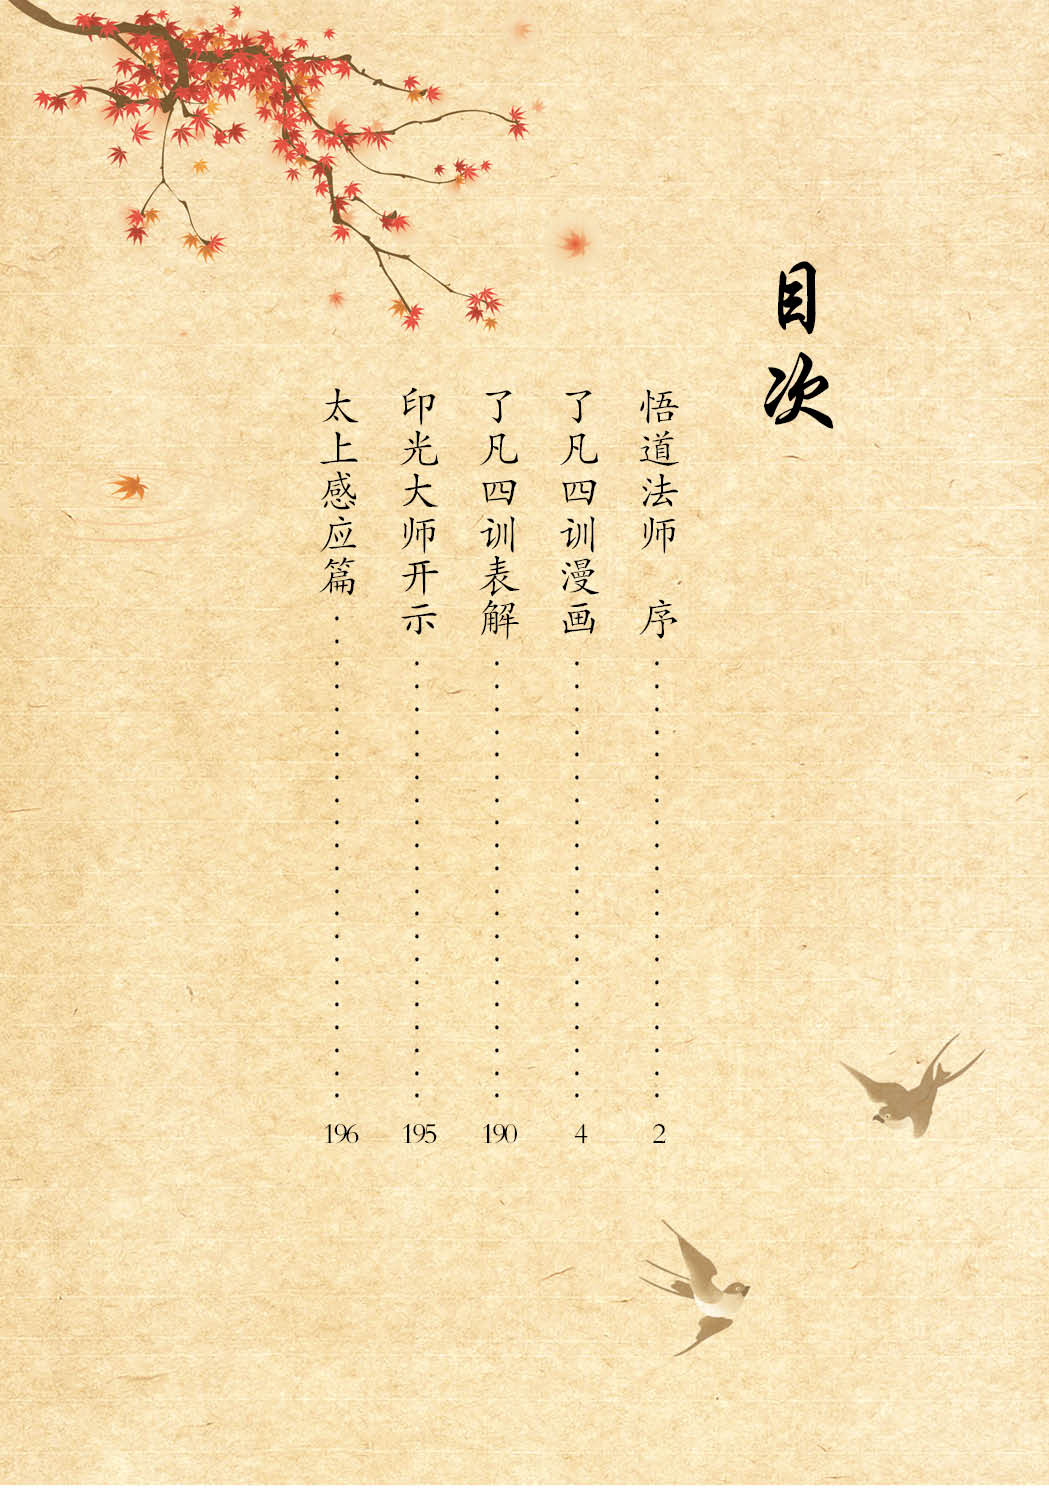 目次
悟道法师　序······················2
了凡四训漫画······················4
了凡四训表解······················190
印光大师开示······················195
太上感应篇······················196